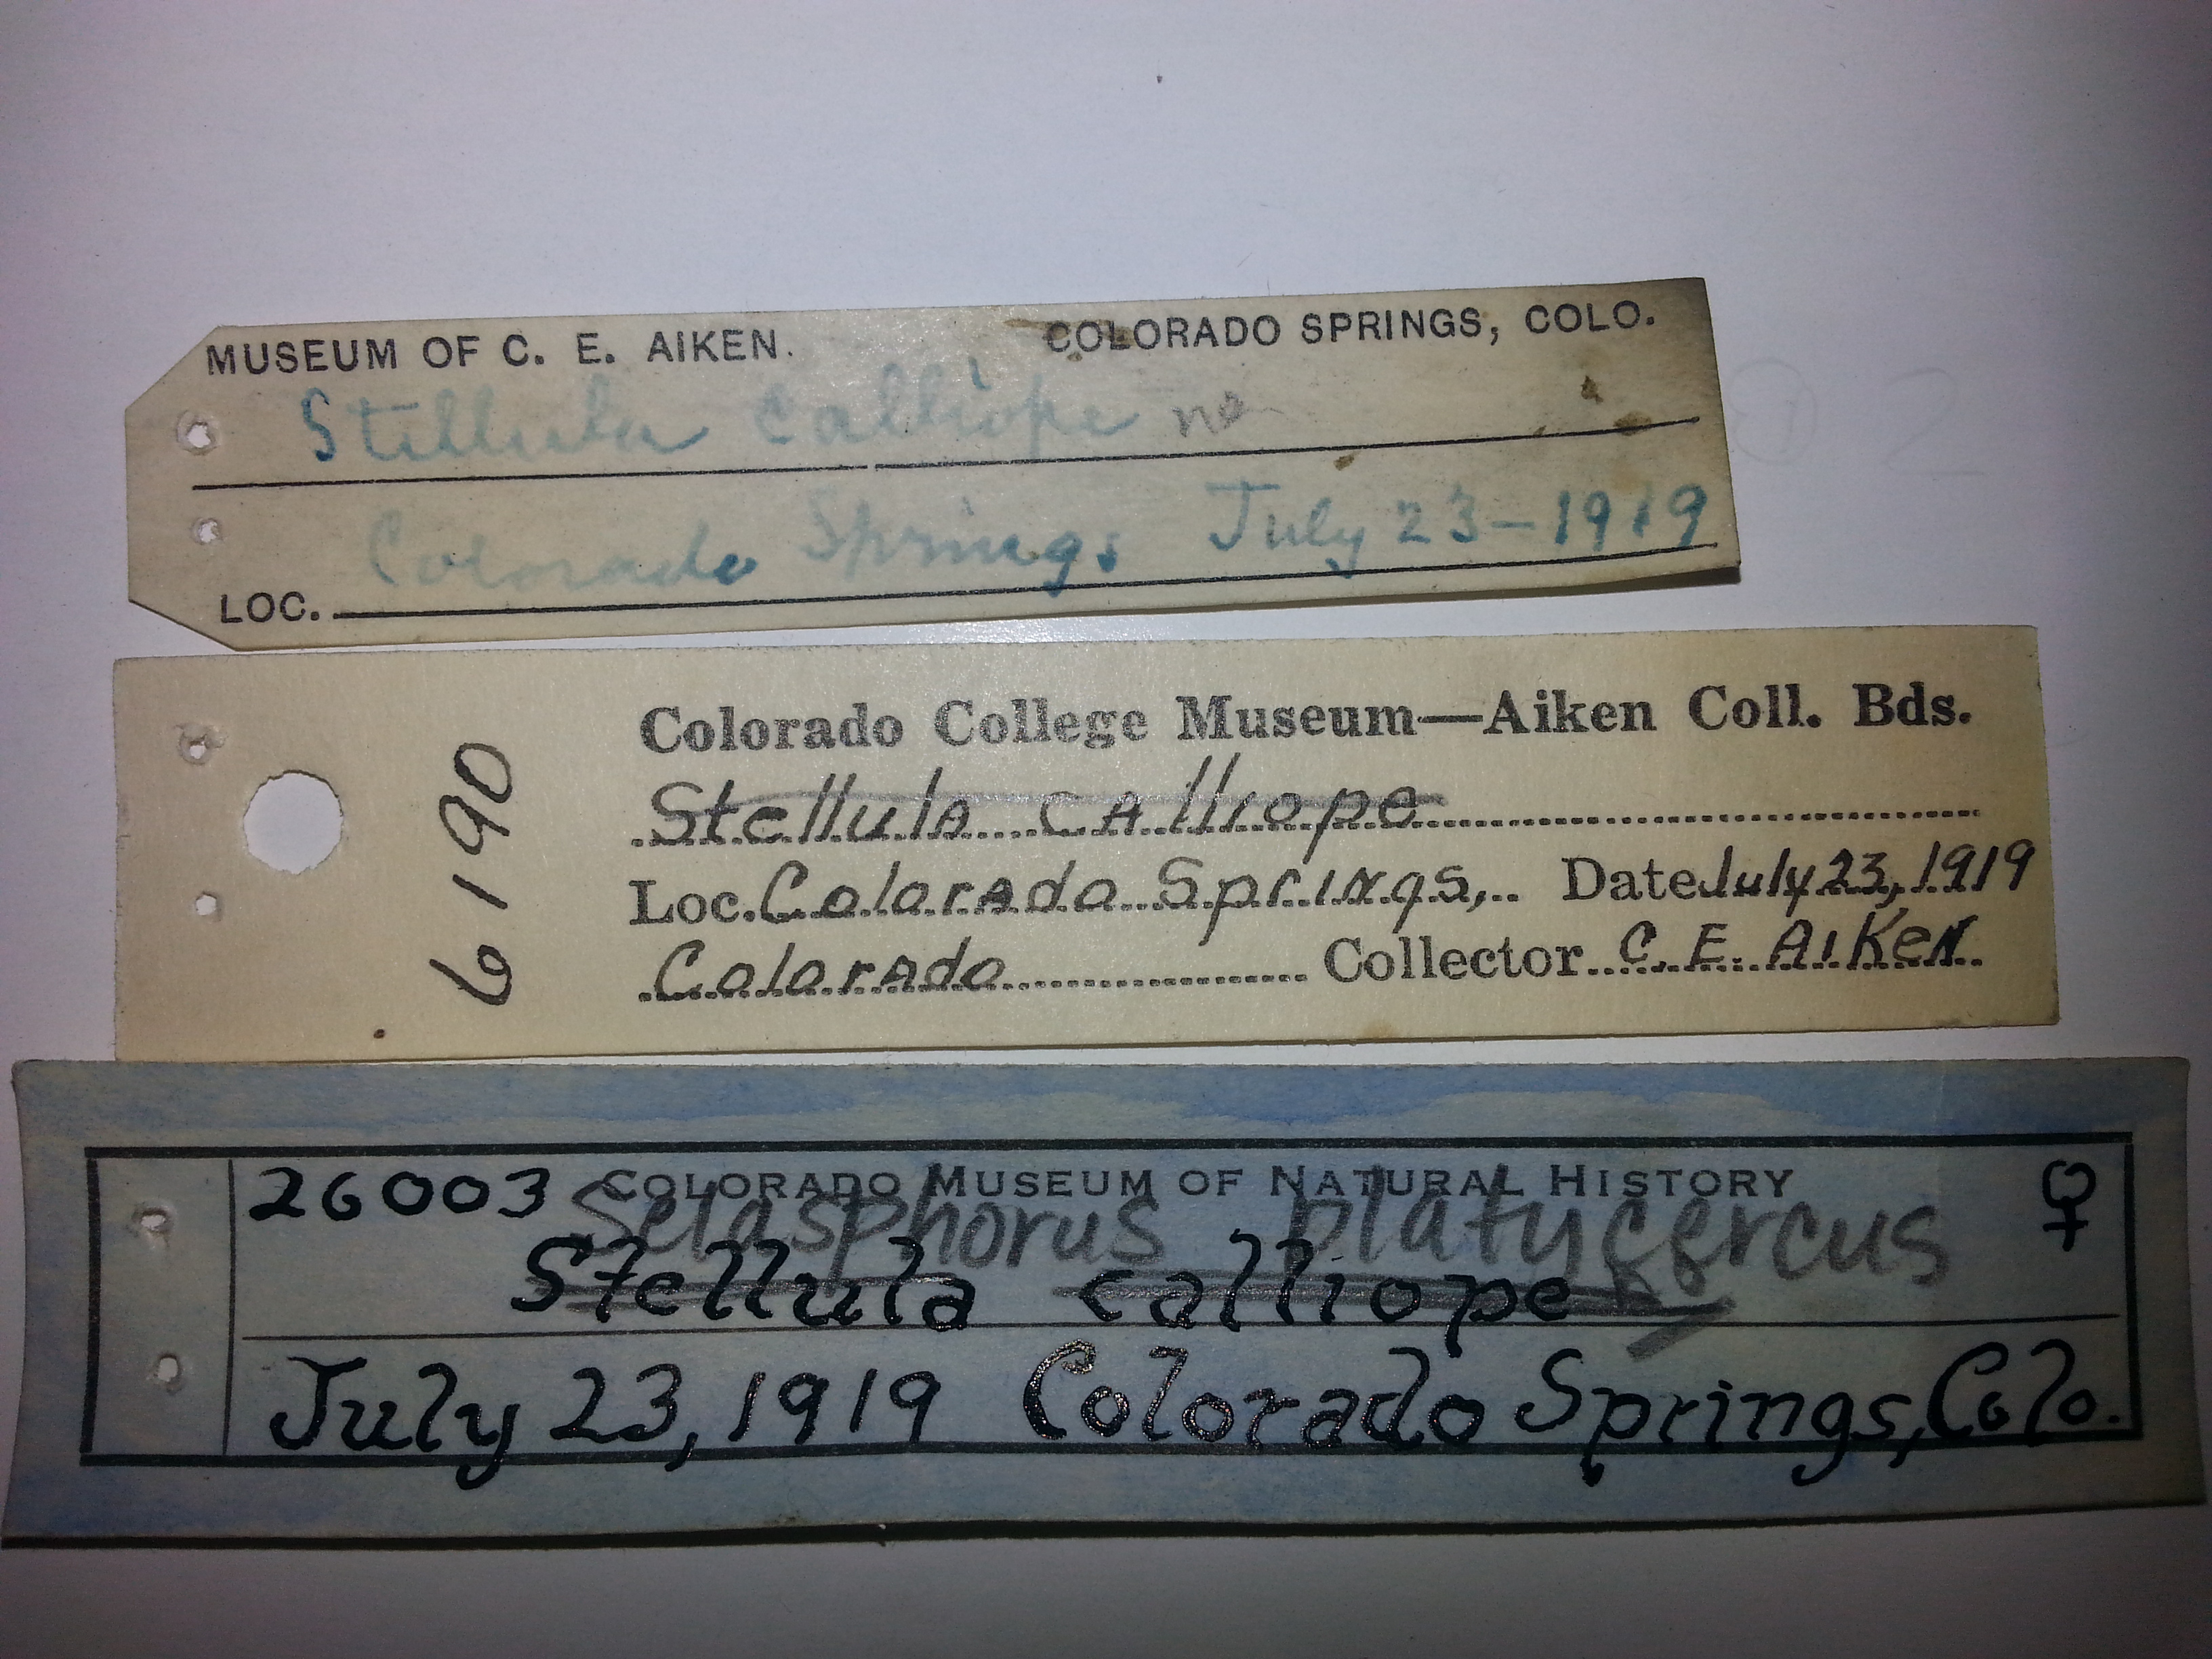 MUSEUM OF C. E. AIKEN. COLORADO SPRINGS, COLO.
Stellula calliope no
Colorado Springs July 23-1919
LOC.
6190
Colorado College Museum—Aiken Coll. Bds.
Stellula calliope
Loc. Colorado Springs, Date July 23, 1919
Colorado Collector C. E. Aiken
26003 COLORADO MUSEUM OF NATURAL HISTORY ♀
Selasphorus platycercus
Stellula calliope
July 23, 1919 Colorado Springs, Colo.